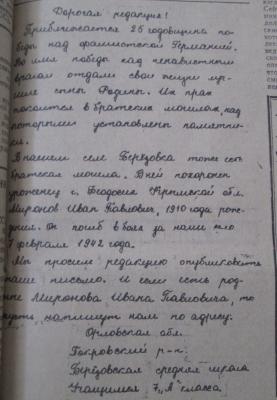 Дорогая редакция!
Приближается 25 годовщина по-
беды над фашистской Германией.
Во имя победы над ненавистным
врагом отдали свои жизни луч-
шие сыны Родины. Их прах
покоится в братских могилах, над
которыми установлены памятни-
ки.
В нашем селе Берёзовка тоже есть
братская могила. В ней похоронен
уроженец г. Феодосия Крымской обл.
Миронов Иван Павлович, 1910 года рож-
дения. Он погиб в боях за наше село
7 февраля 1942 года.
Мы просим редакцию опубликовать
наше письмо. И если есть род-
ные Миронова Ивана Павловича, то
пусть напишут нам по адресу:
Орловская обл.
Покровский р-н.
Берёзовская средняя школа
Учащимся 7 "А" класса.